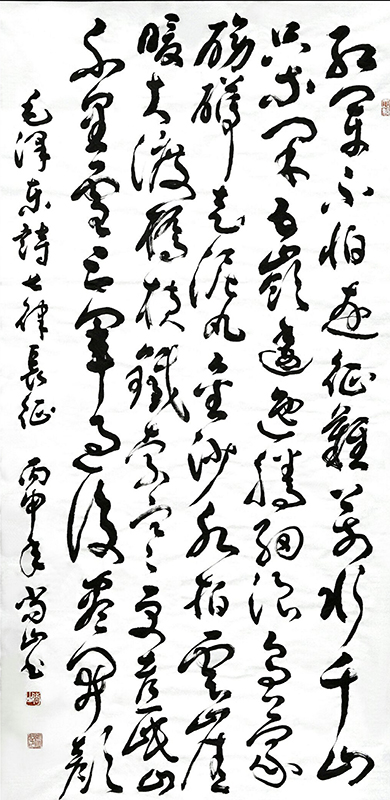 红军不怕远征難萬水千山
只等闲五嶺逶迤腾细浪乌蒙
磅礴走泥丸金沙水拍雲崖
暖大渡橋横鐵索寒更喜岷山
千里雪三軍过後尽開颜
毛泽东詩七律長征 丙申年尚山书